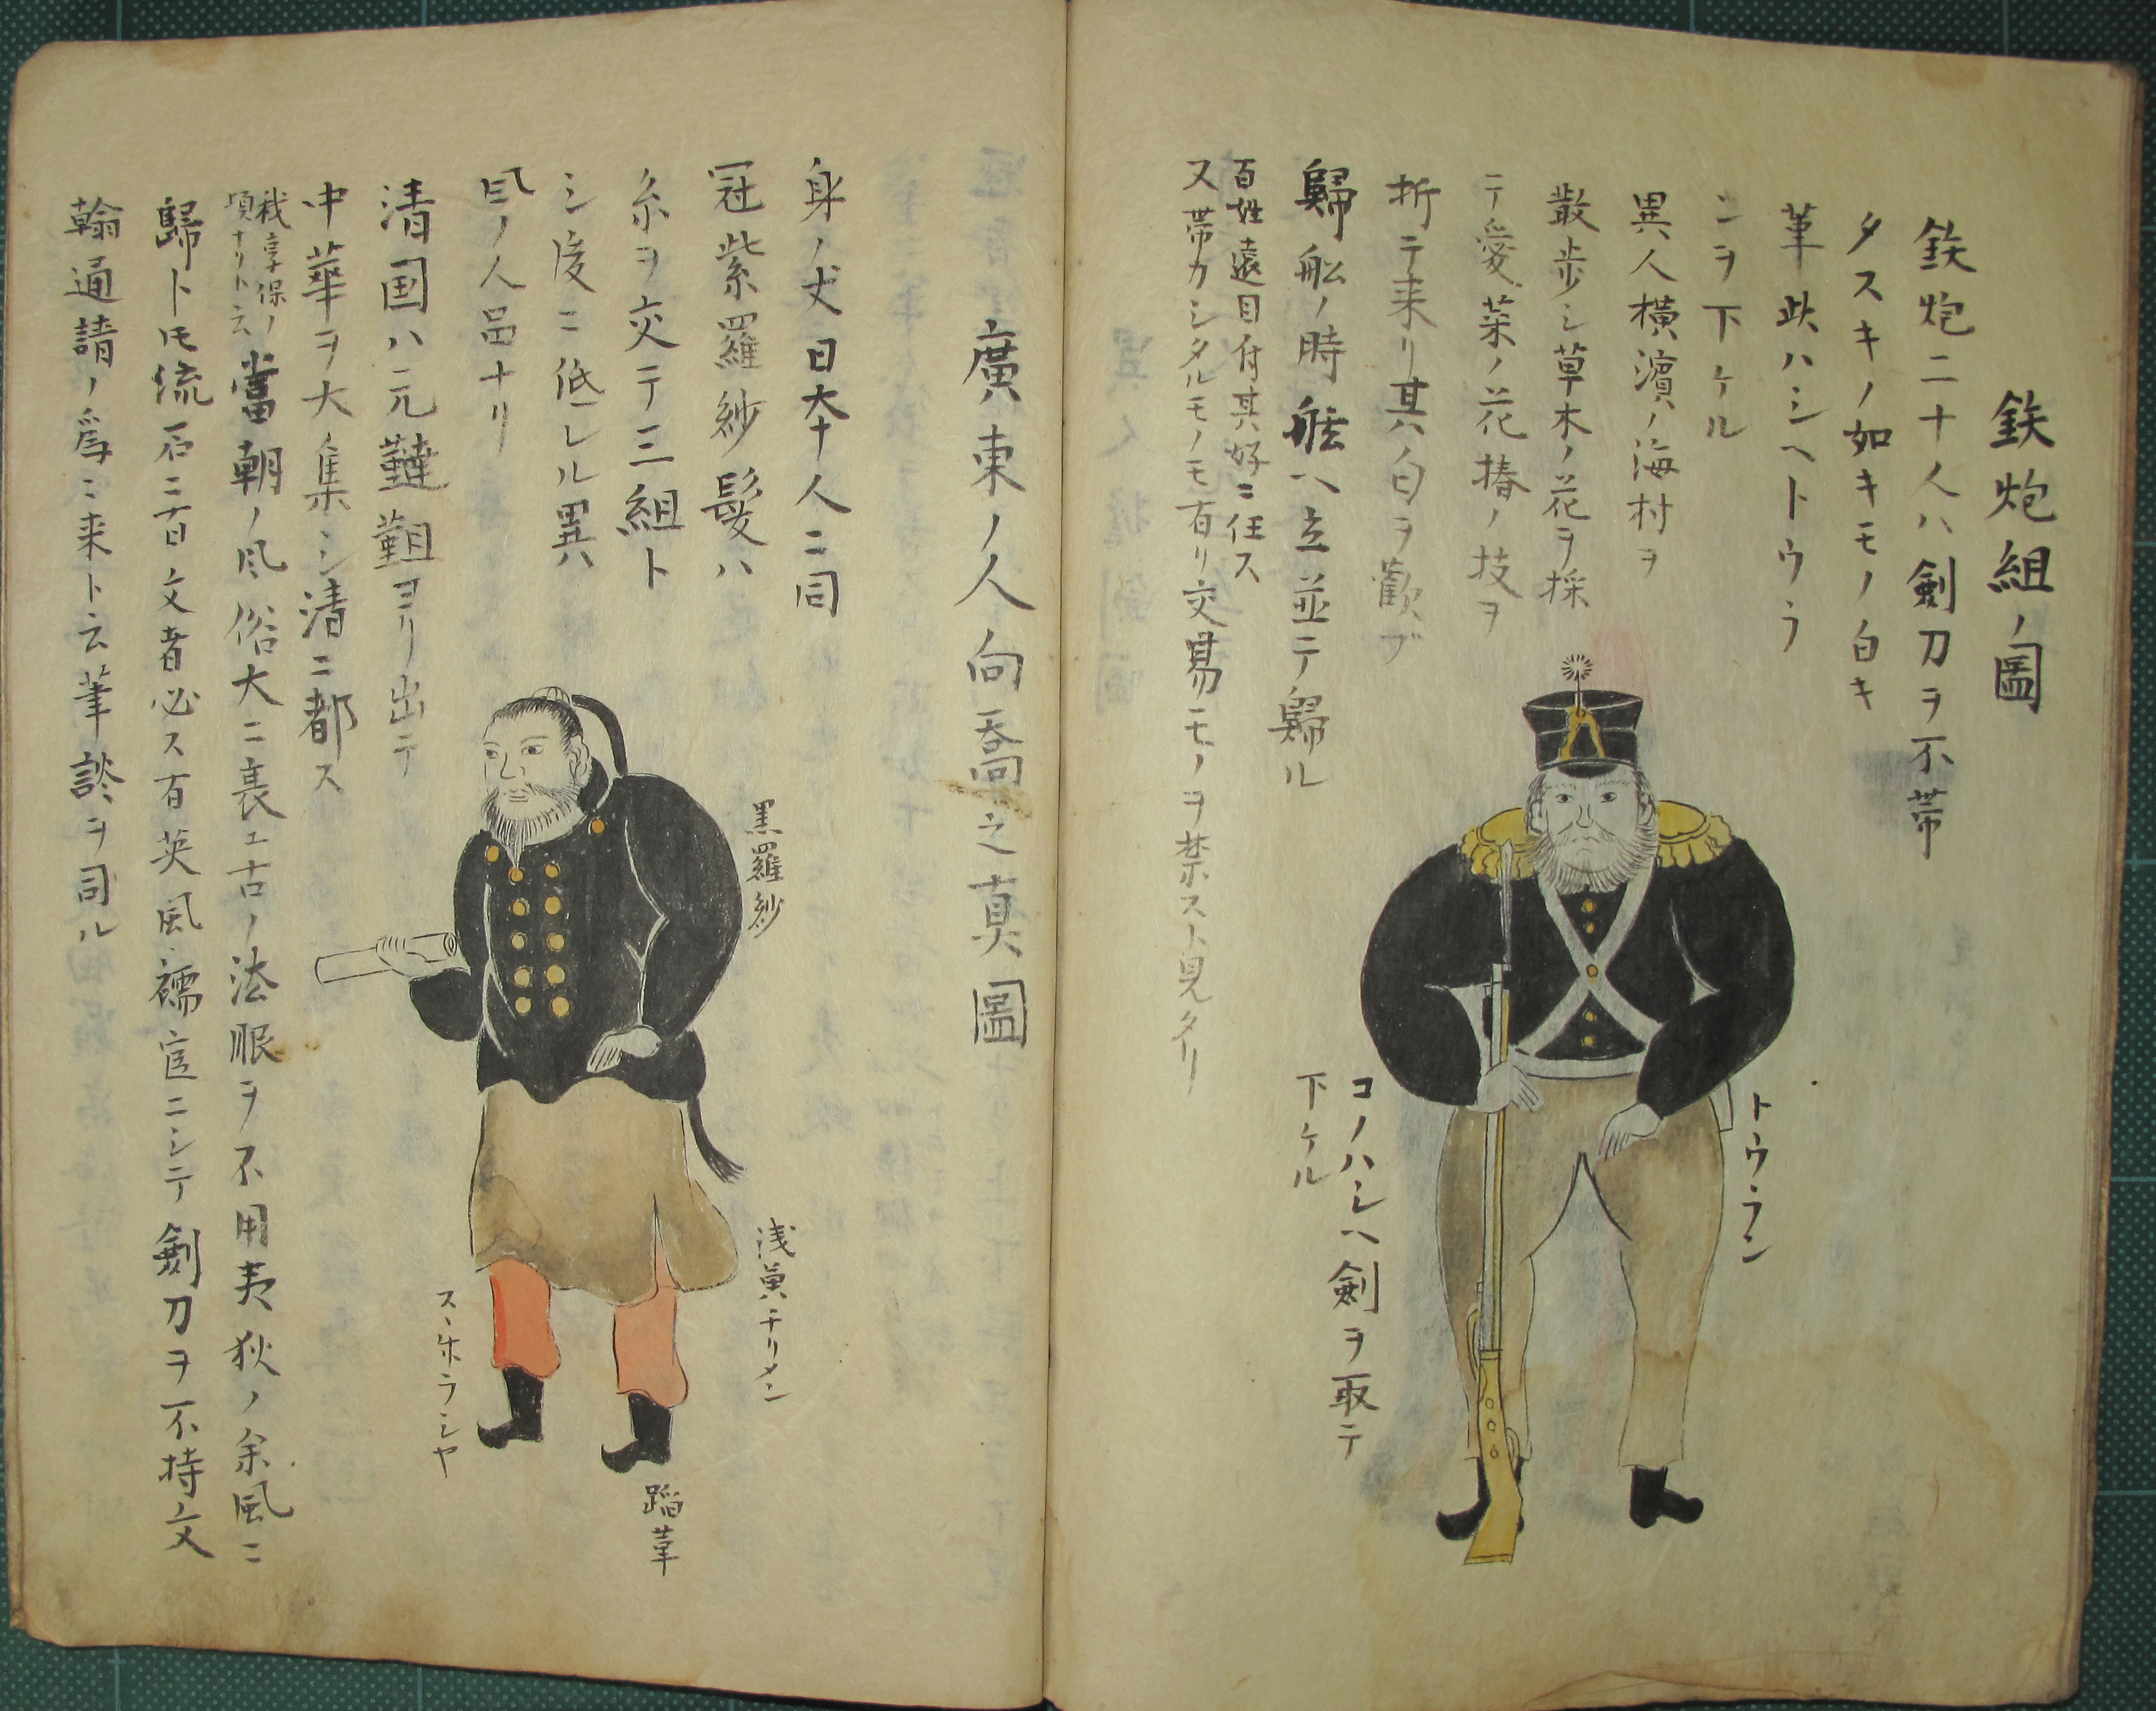 鉄炮組ノ圖
鉄炮二十人ハ劍刀ヲ不帯
タスキノ如キモノ白キ
革此ハシヘトウラ
ンヲ下ケル
異人横濱ノ海村ヲ
散歩シ草木ノ花ヲ採
テ愛菜ノ花椿ノ技ヲ
折テ来リ其ハ白ヲ歡ブ
歸舩ノ時舷ヘ立並テ歸ル
百姓遠目付其好ニ任ス
又帯カシタルモノモ有リ交易モノヲ禁スト見タリ
トウラン
コノハシヘ劍ヲ取テ
下ケル
廣東ノ人向喬之真圖
身ノ丈日本人ニ同
冠紫羅紗髪ハ
糸ヲ交テ三組ト
シ後ニ低レル異
風ノ人品ナリ
清国ハ元韃靼ヨリ出テ
中華ヲ大ニ集シ清ニ都ス
我享保ノ
頃ナリト云
當朝ノ風俗大ニ衰エ古ノ法眼ヲ不用夷狄ノ余風ニ
歸ト云流石ニ文者必ス有英風儒官ニシテ劍刀ヲ不持文
翰通請ノ為ニ来ト云筆談ヲ司ル
黒羅紗
浅黄チリメン
スヽホラシヤ
蹈革